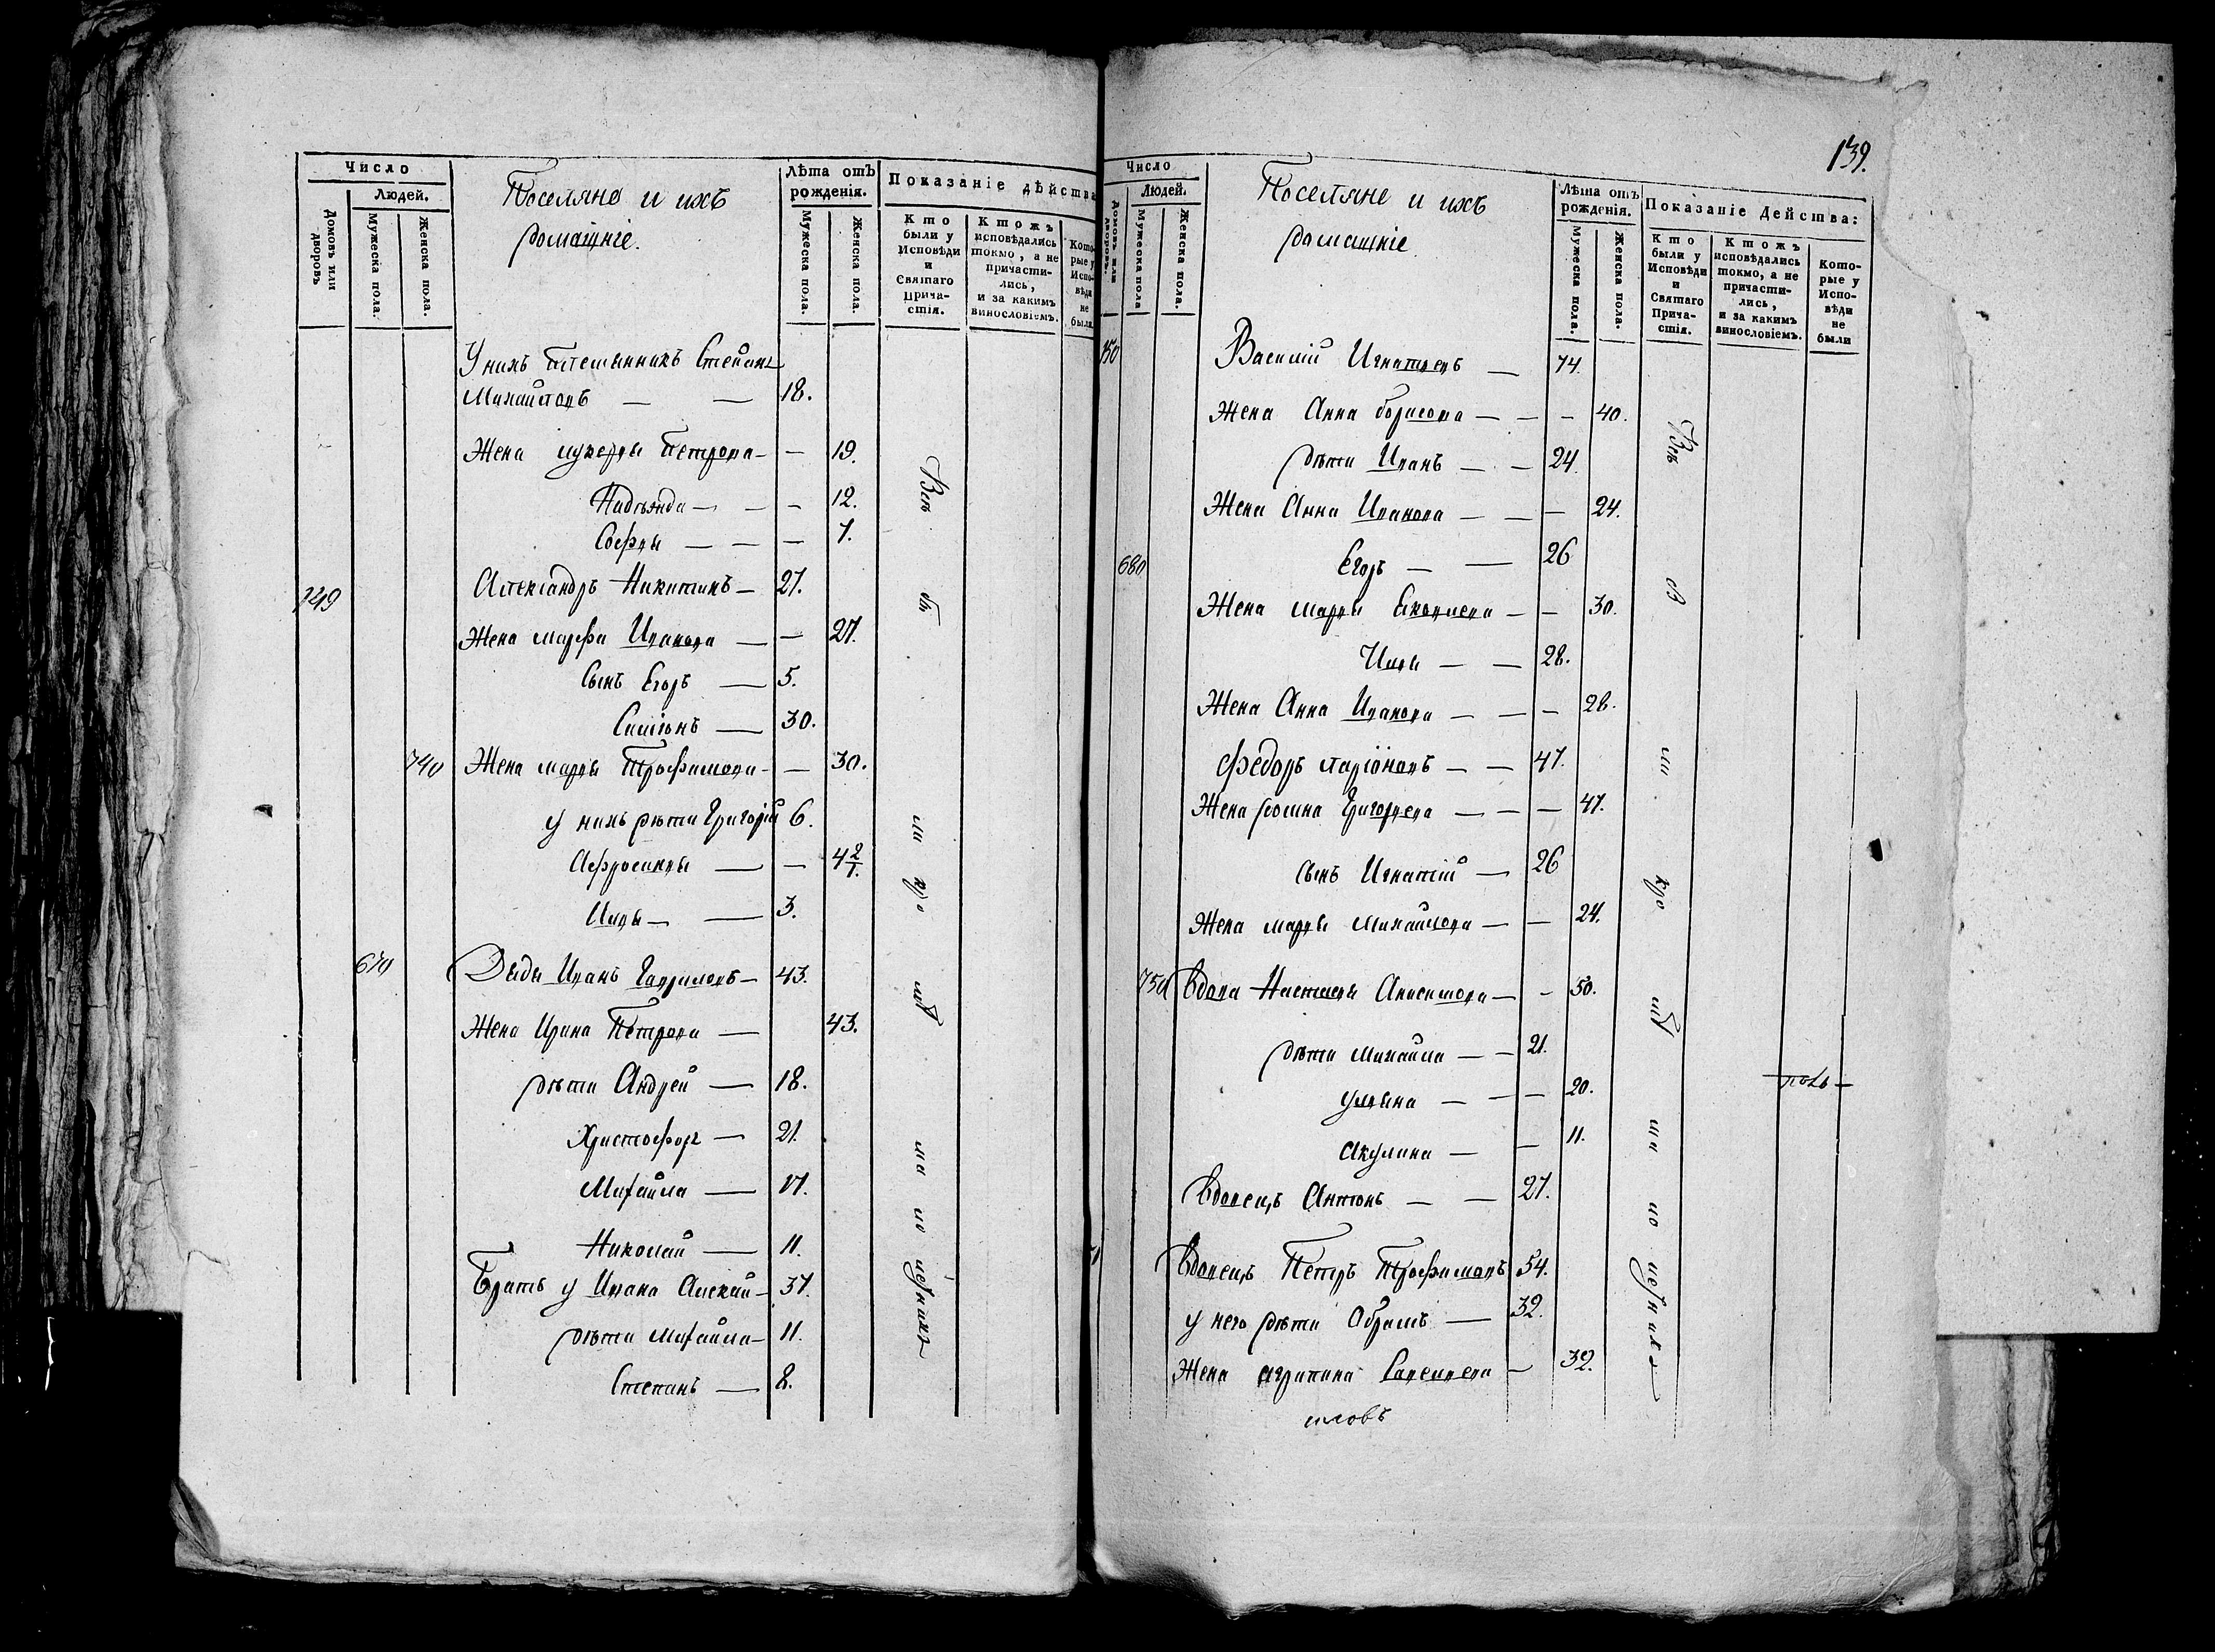 Число
Людей.
Домовъ или дворовъ
Мужеска пола.
Женска пола.
Поселяне и ихъ
домашніе.
Лѣта отъ рожденія.
Мужеска пола.
Женска пола.
Показаніе дѣйства
Кто были у Исповѣди и Святаго Прича-стія.
Ктожъ исповѣдались токмо, а не причасти-лись, и за какимъ винословіемъ.
Кото-рые у Испо-вѣди не были
У нихъ племянникъ Степанъ
Михайловъ — — 18.
Жена Лукерья Петрова — — 19.
Надежда — — — 12.
Софья — — — 7.
749 Александръ Никитинъ — 27.
Жена Марфа Иванова — — 27.
Сынъ Егоръ — 5.
Симіонъ — 30.
740 Жена Марья Трофимова — — 30.
у нихъ дѣти Григорій 6.
Афросинья — — 4
Илья — — 3.
670 Иванъ Гавриловъ — 43.
Жена Ирина Петрова — 43.
дѣти Андрей — 18.
Христофоръ — 21.
Михайла — 17.
Николай — 11.
Братъ у Ивана Алексѣй — 37.
дѣти Михайла — 11.
Степанъ — 8.
Всѣ
139.
Число
Людей.
Домовъ или дворовъ.
Мужеска пола
Женска пола.
Поселяне и ихъ
домашніе
Лѣта отъ рожденія.
Мужеска пола.
Женска пола.
Показаніе Дѣйства:
Кто были у Исповѣди и Святаго Прича-стія.
Ктожъ исповѣдались токмо, а не причасти-лись, и за какимъ винословіемъ.
Кото-рые у Испо-вѣди не были
150 Василій Игнатьевъ — 74.
Жена Анна Борисова — — — 40.
дѣти Иванъ — — 24.
Жена Анна Иванова — — — 24.
680 Егоръ — — 26
Жена Марья — — 30.
Илья — — 28.
Жена Анна Иванова — — — 28.
Федоръ Ларіоновъ — — 47.
Жена Григорьева — — — 47.
сынъ Игнатій — 26
Жена Марья Михайлова — — 24.
750 Вдова Настасья Анисимова — — 50.
дѣти Михайла — — 21.
Ульяна — — — 20.
Акулина — — 11.
Вдовецъ Антонъ — — 27.
Вдовецъ Петръ Трофимовъ 54.
у него дѣти Абрамъ — 32.
Жена Агрипина Савельева — 32.
Всѣ